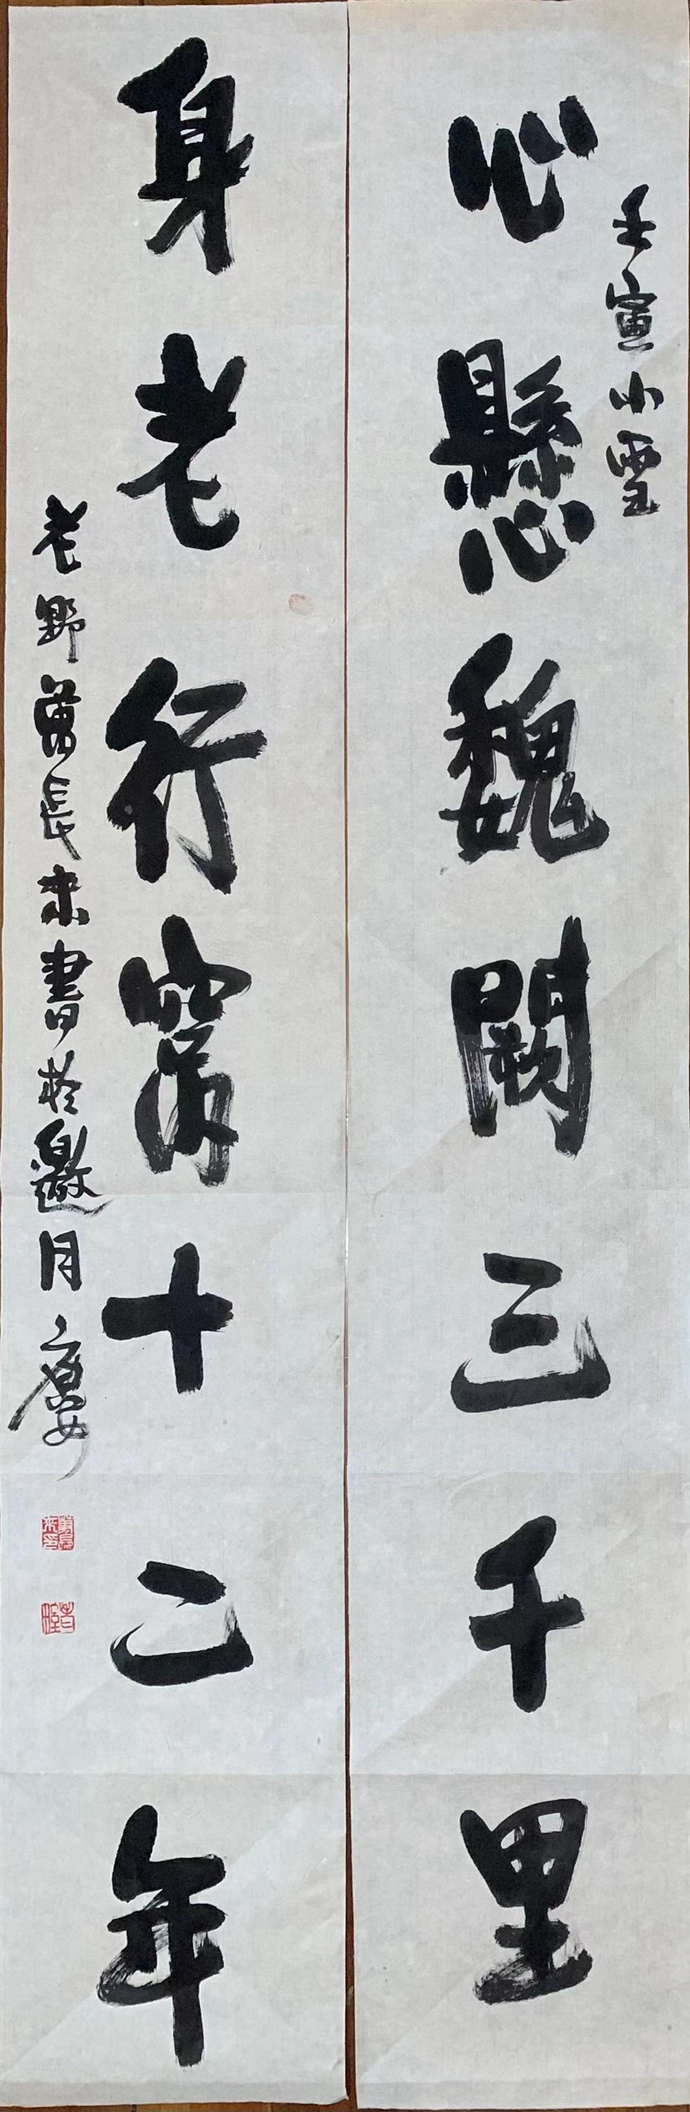 壬寅小雪
心懸魏闕三千里
身老行窩十二年
老野曾長來書於邀月廔